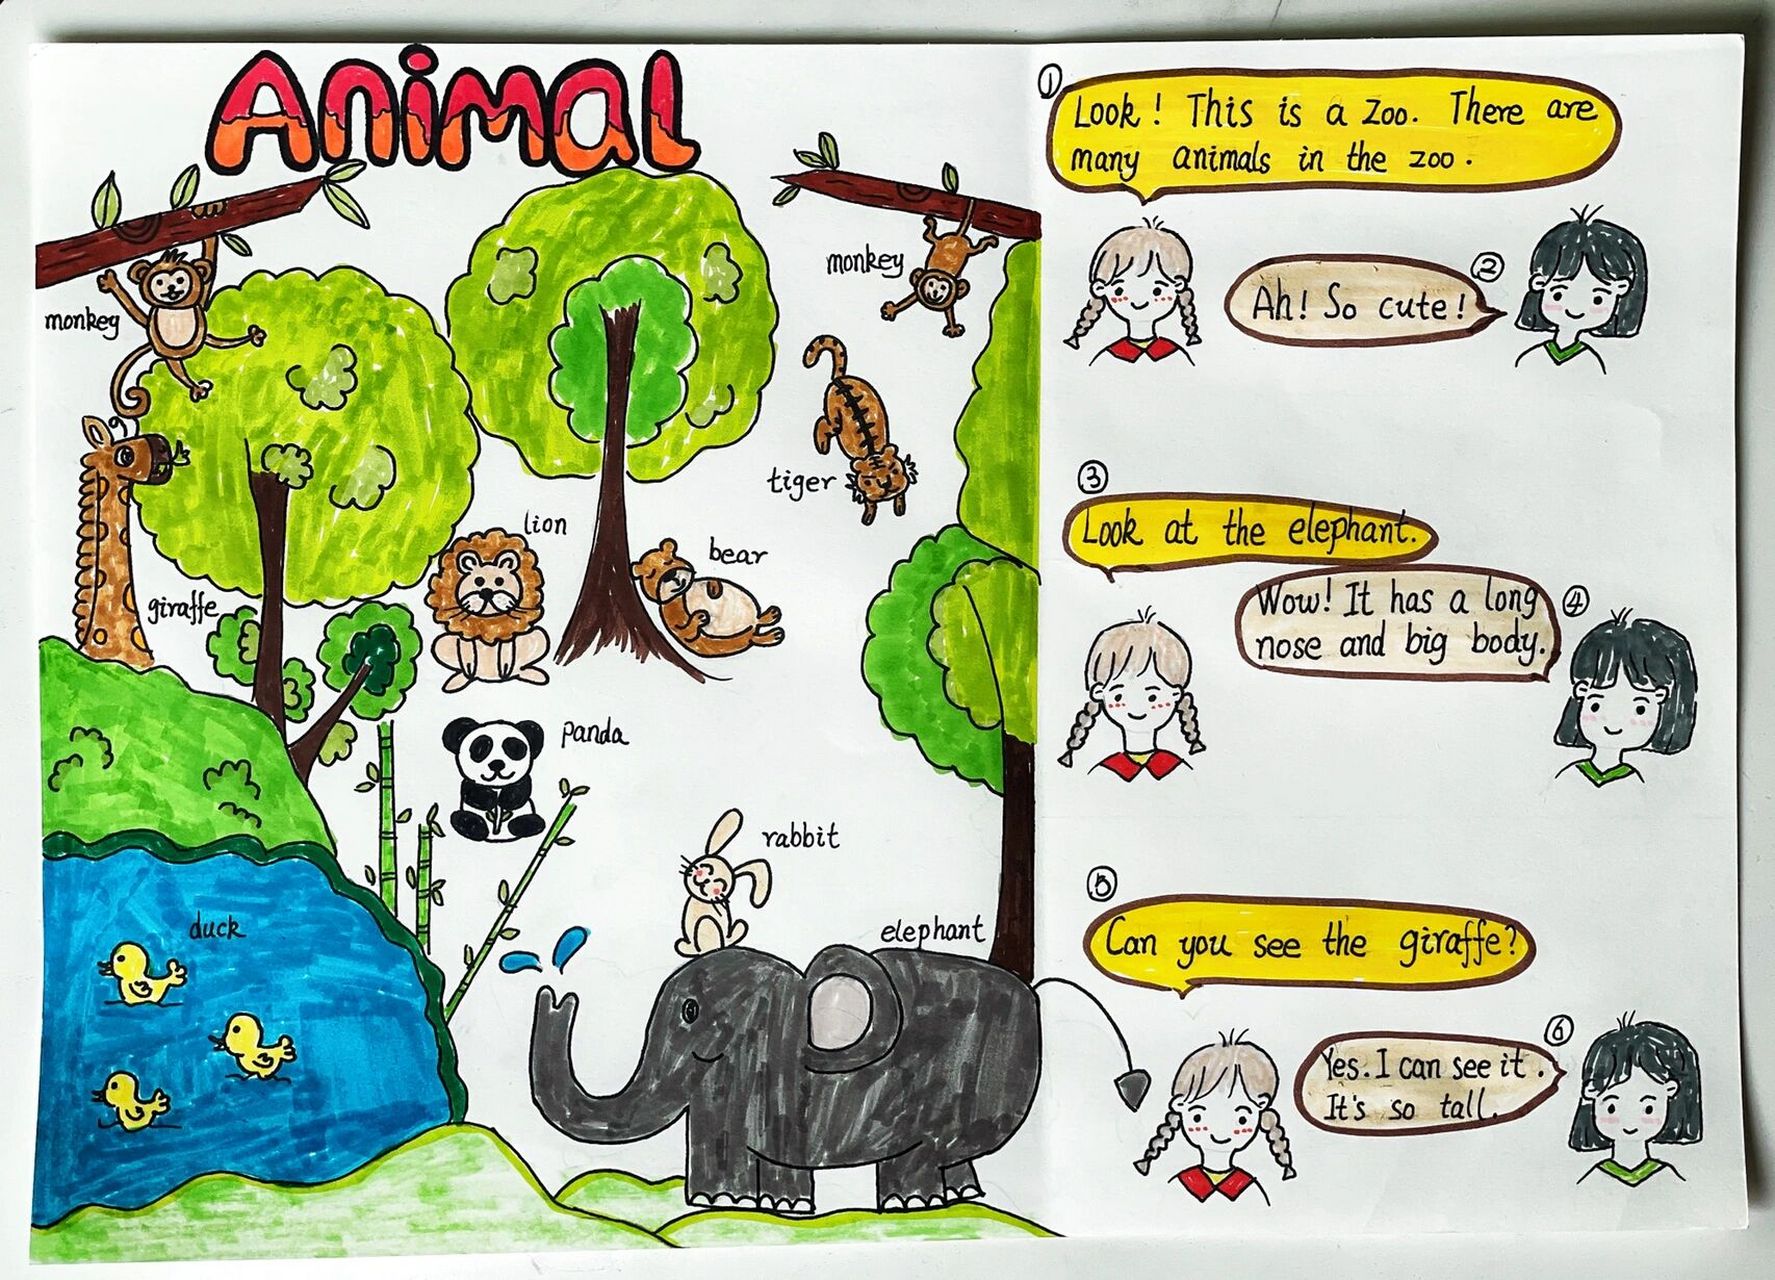 Animal
monkey
monkey
tiger
lion
bear
giraffe
panda
rabbit
duck
elephant
①
Look! This is a zoo. There are
many animals in the zoo.
②
Ah! So cute!
③
Look at the elephant.
④
Wow! It has a long
nose and big body.
⑤
Can you see the giraffe?
⑥
Yes. I can see it.
It's so tall.